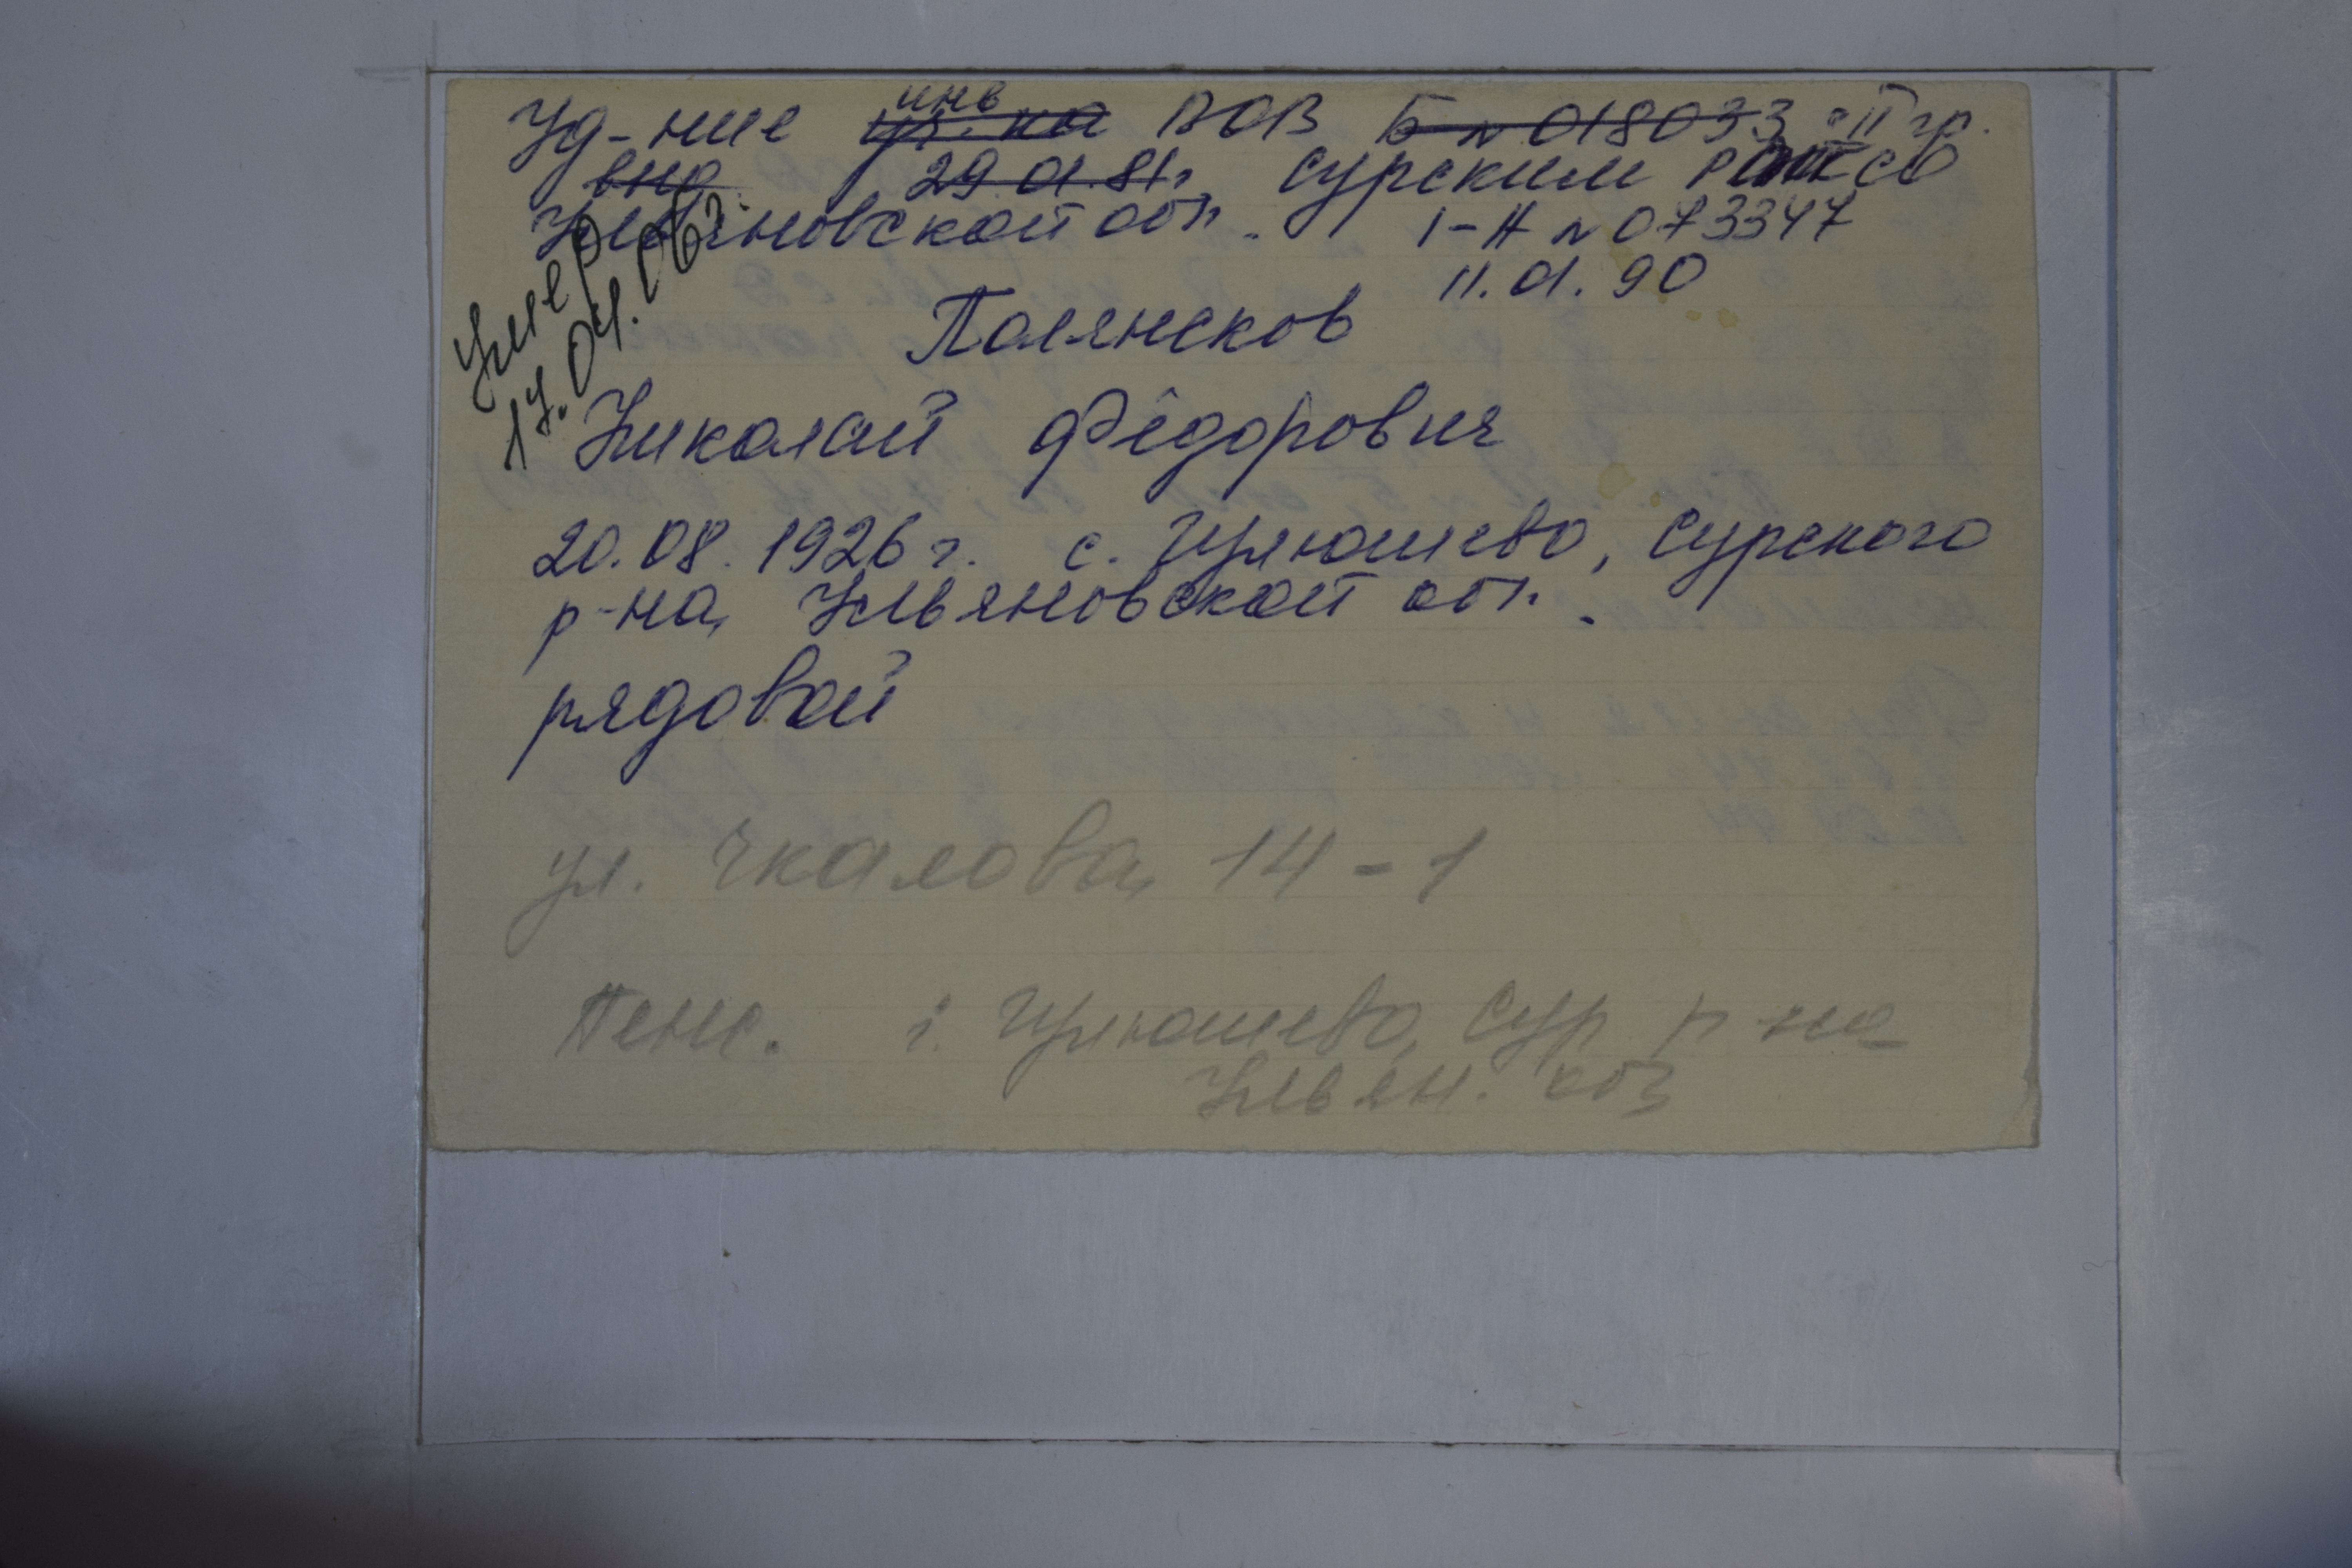 Уд-ние инв ~~уч-ка~~ ВОВ ~~Б № 018033~~ II гр.
29.01.81г. Сурским
Ульяновской обл. I-Н № 073347
11.01.90
умер
17.04.06г.
Полянсков
Николай Фёдорович
20.08.1926 г. с. Цулюшево, Сурского
р-на, Ульяновской обл.
рядовой
ул. Чкалова, 14-1
Пенс. Сур. р-на
Ульян.